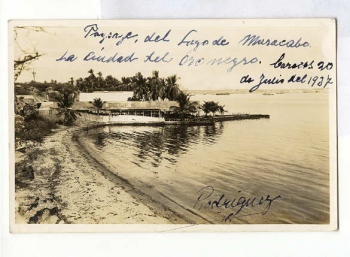 Paisaje, del Lago de Maracabo.
La Ciudad del Oronegro. Caracas 20
de Julio del 1937
Rodriguez